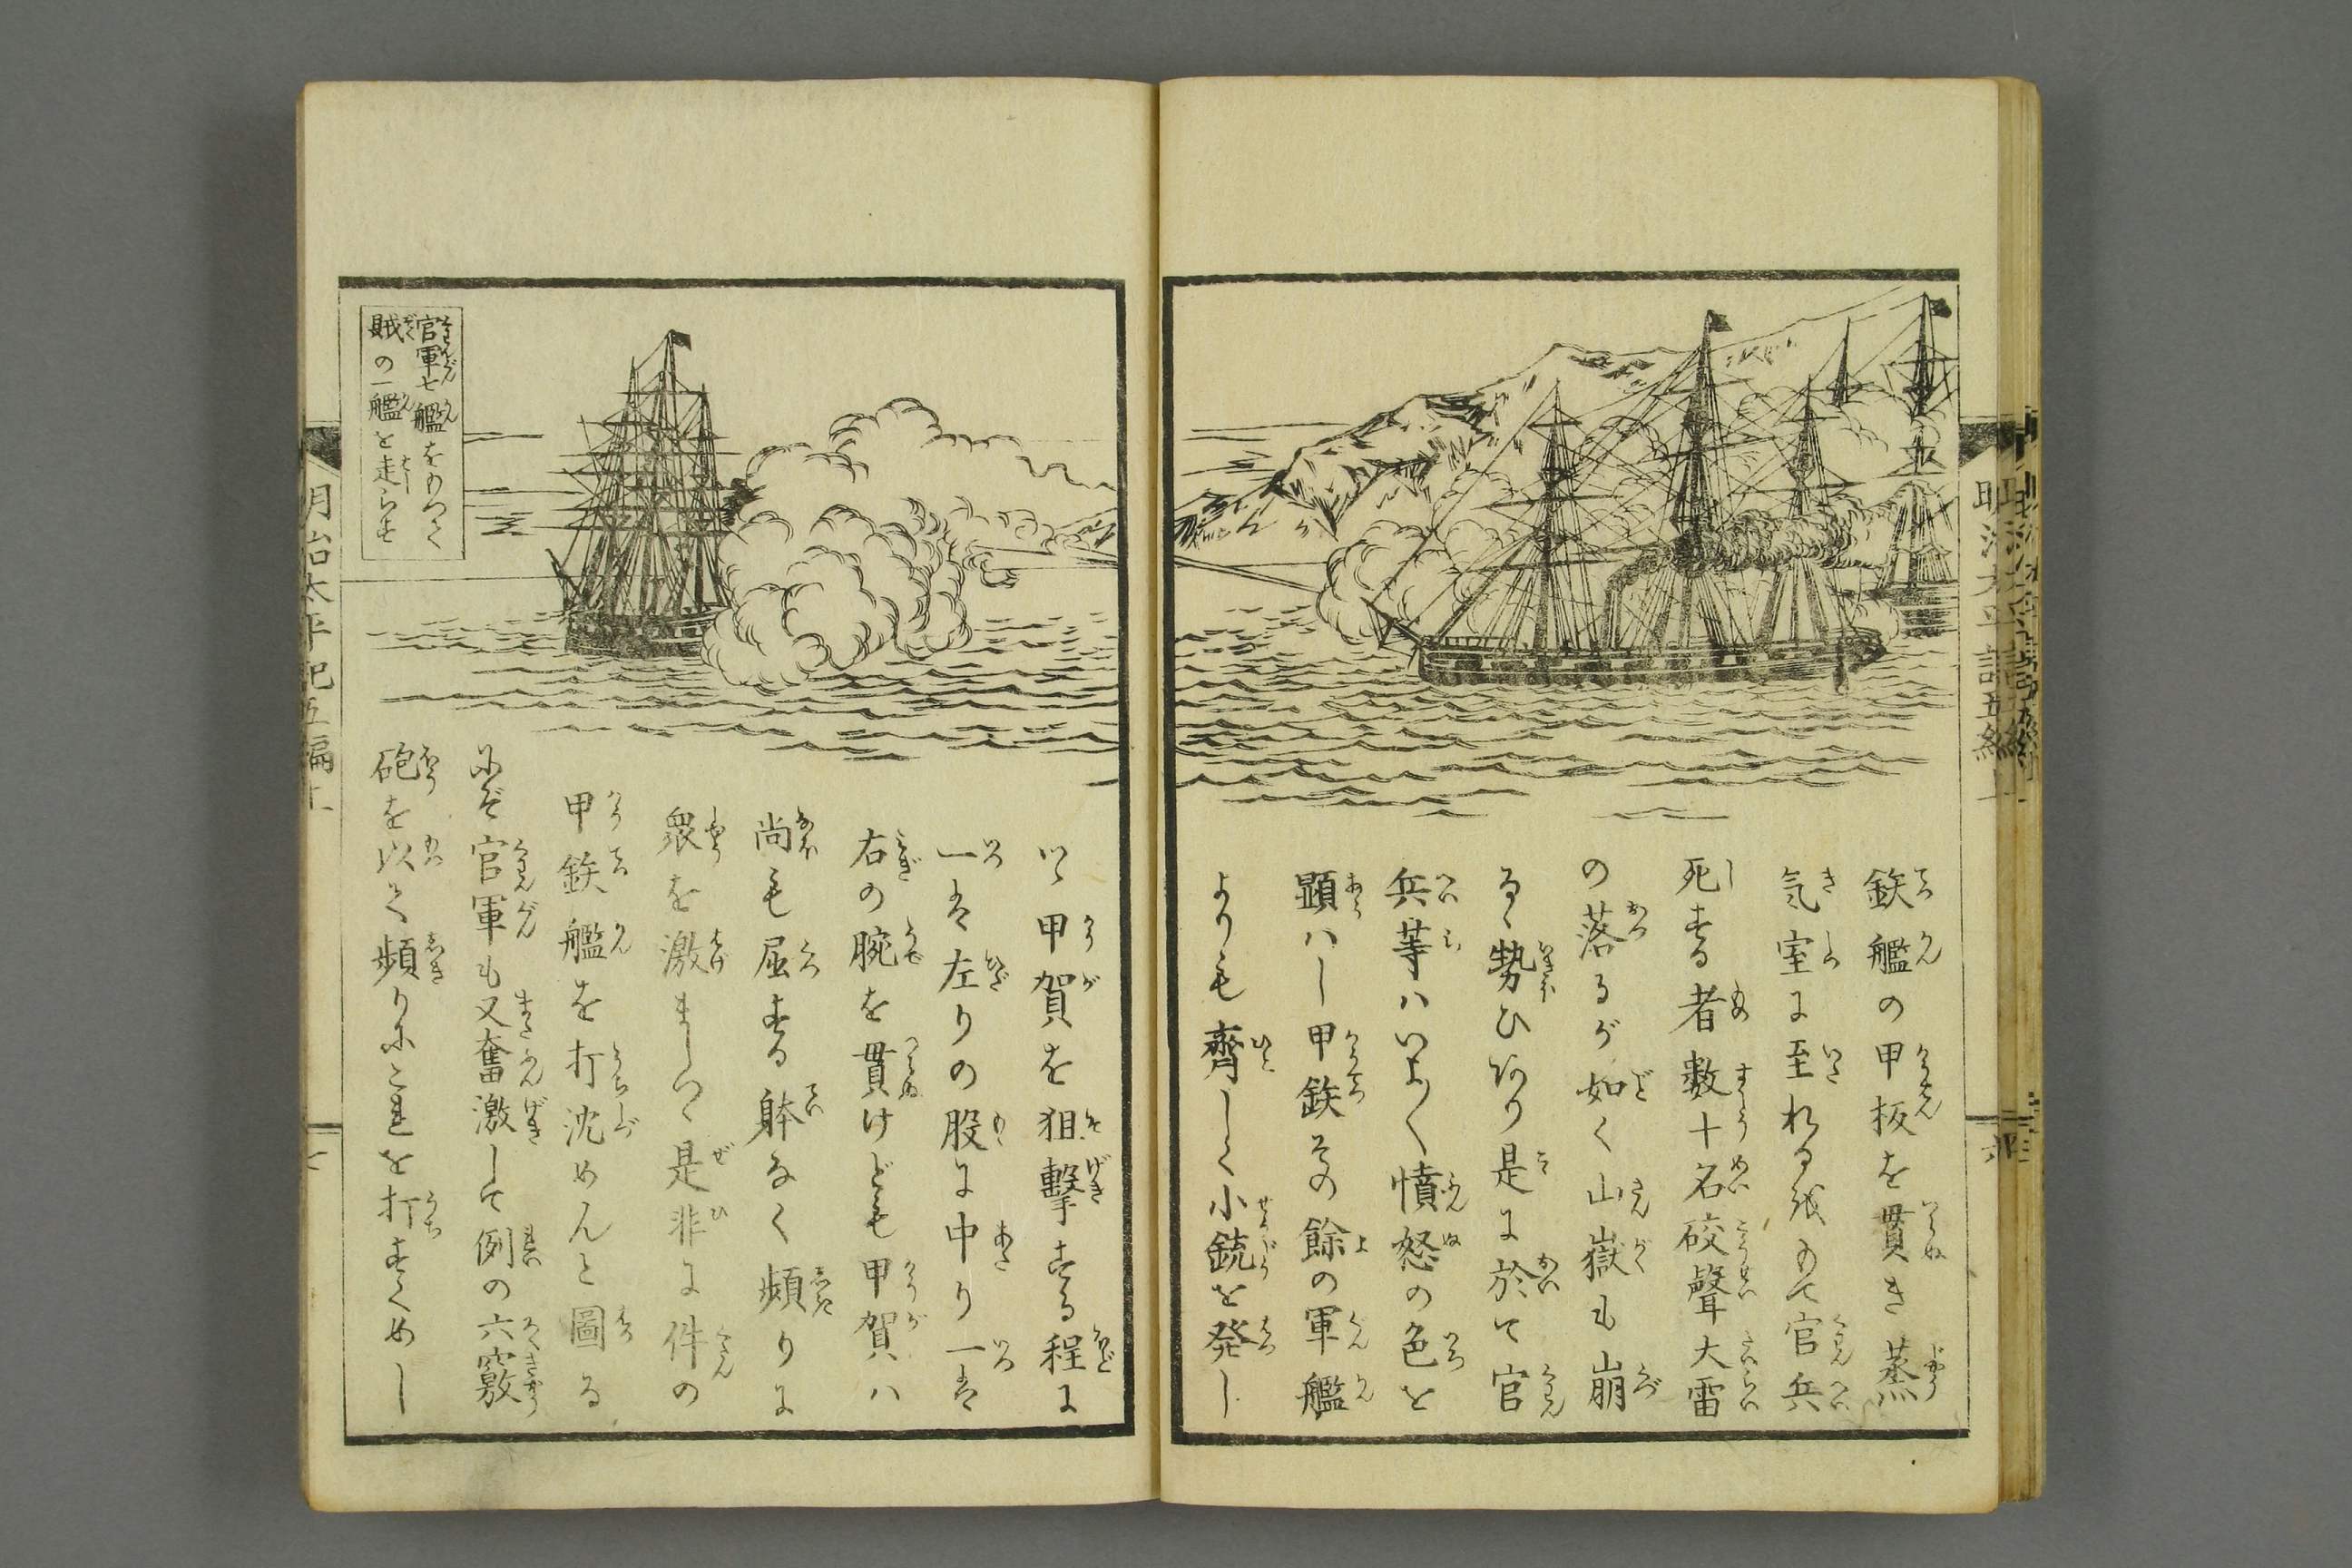 鉄艦の甲板を貫き蒸
気室に至れる故もて官兵
死する者数十名砲聲大雷
の落るが如く山嶽も崩
るゝ勢ひあり是に於て官
兵等ハいよ〳〵憤怒の色を
顕ハし甲鉄その餘の軍艦
よりも齊しく小銃を発し
官軍七艦をもつて
賊の一艦を走らす
つゝ甲賀を狙撃する程に
一は左りの股に中り一は
右の腕を貫けども甲賀ハ
尚も屈する躰なく頻りに
衆を激ましつゝ是非に件の
甲鉄艦を打沈めんと圖る
にぞ官軍も又奮激して例の六竅
砲を以て頻りにこれを打すくめし
明治太平記五編上
七